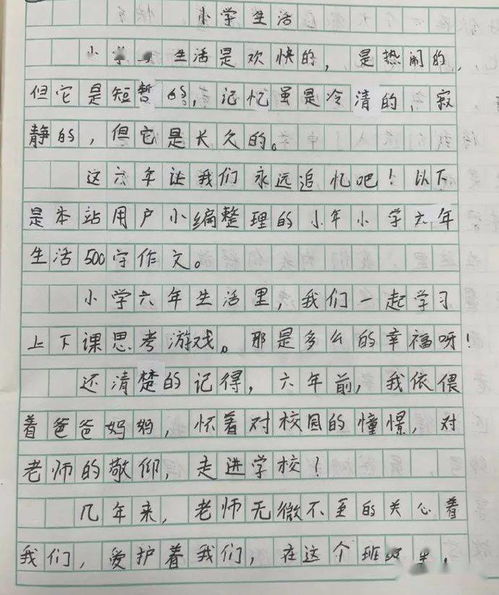 小学生活
小学生活是欢快的，是热闹的，
但它是短暂的，记忆虽是冷清的，寂
静的，但它是长久的。
这六年让我们永远追忆吧！以下
是本站用户小编整理的小年小学六年
生活500字作文。
小学六年生活里，我们一起学习
上下课思考游戏。那是多么的幸福呀！
还清楚的记得，六年前，我依偎
着爸爸妈妈，怀着对校园的憧憬，对
老师的敬仰，走进学校！
几年来，老师无微不至的关心着
我们，爱护着我们，在这个班